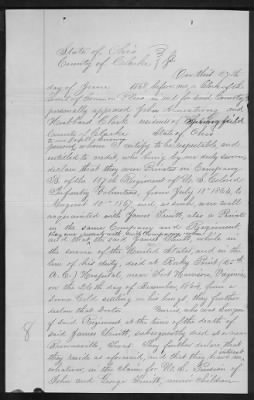 State of Ohio
County of Clarke
On this 27th
day of June 1868 before me a Clerk of the
Court of Common Pleas in and for said County
personally appeared John Armstrong and
Hubbard Clark residents of Springfield
County of Clarke State of Ohio
persons whom I certify to be respectable, and
entitled to credit, who being by me duly sworn,
declare that they were Privates in Company
of the 107th Regiment of U.S. Colored
Infantry Volunteers, from July 18th 1864, to
August 1867 and, as such, were well
acquainted with James Truitt, also a Private
in the same Company and Regiment,
and that, the said James Truitt, while in
the service of the United States, and in the
line of his duty, died at Rocky Point (25th
A.C.) Hospital, near Fort Harrison, Virginia,
on the 26th day of December, 1864, from a
severe Cold settling on his lungs they further
declare that Doctor was Surgeon
of said Regiment at the time of the death of
said James Truitt, subsequently died at or near
Brownsville, Texas. They further declare that
they reside as aforesaid, and that they have no interest
whatever, in the claim for U.S. Pension of
John and George Truitt, minor children
8